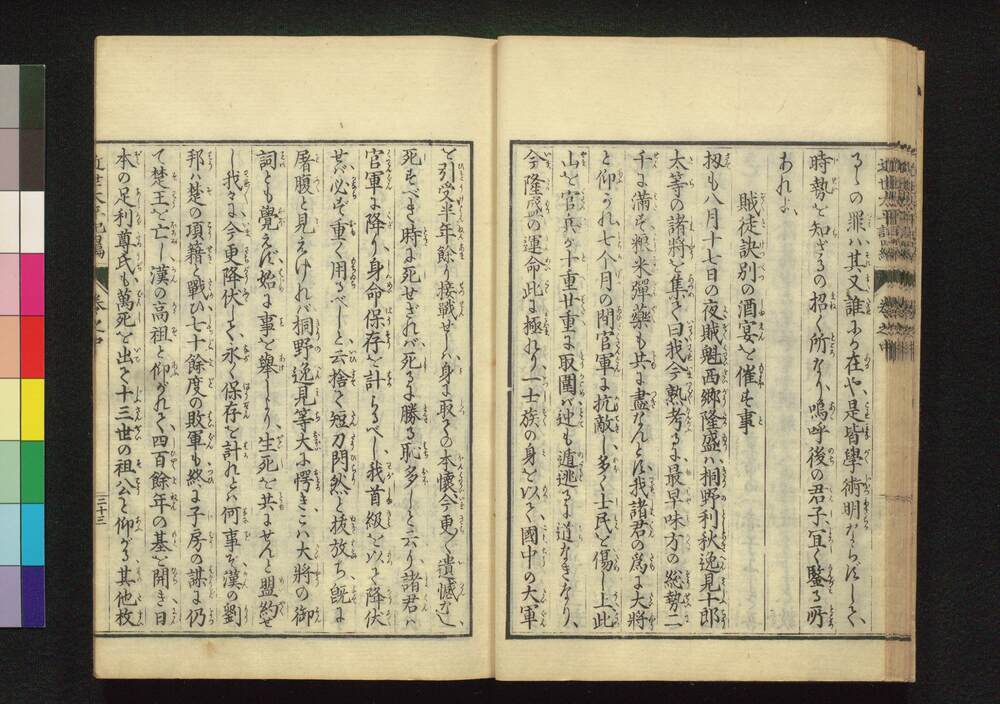 るゝの罪ハ其又誰にか在や是皆學術明かならずして、
時勢を知ざるの招く所なり嗚呼後の君子宜く鑒る所
あれよ、
賊徒訣別の酒宴を催す事
扨も八月十七日の夜賊魁西郷隆盛ハ桐野利秋逸見十郎
太等の諸將を集て曰我今熟考るに最早味方の総勢二
千に満ず、粮米彈藥も共に盡なんとす我諸君の為に大將
と仰がれ、七个月の間官軍に抗敵し、多くの士民を傷し上、此
山を官兵が十重廿重に取圍バ迚も遁逃るに道なきなり、
今隆盛の運命此に極れり、一士族の身を以て國中の大軍
を引受半年餘り接戰せしハ身に取ての本懷今更に遺憾なし、
死すべき時に死せざれバ死に勝る恥多しと云り諸君ハ
官軍に降り身命保存を計らるべし、我首級を以て降伏
せバ必ず重く用るべしと云捨て短刀閃然と拔放ち、既に
屠腹と見えけれバ桐野逸見等大に愕きこハ大將の御
詞とも覺えず始め事を擧しより、生死を共にせんと盟約せ
し我々に今更降伏して、永く保存を計れとハ何事ぞ漢の劉
邦ハ楚の項籍と戰ひ七十餘度の敗軍も終に子房の謀に仍
て楚王を亡し漢の高祖と仰がれて、四百餘年の基を開き日
本の足利尊氏も萬死を出て十三世の祖公と仰がる其他枚
近世太平記
卷之中
三十三